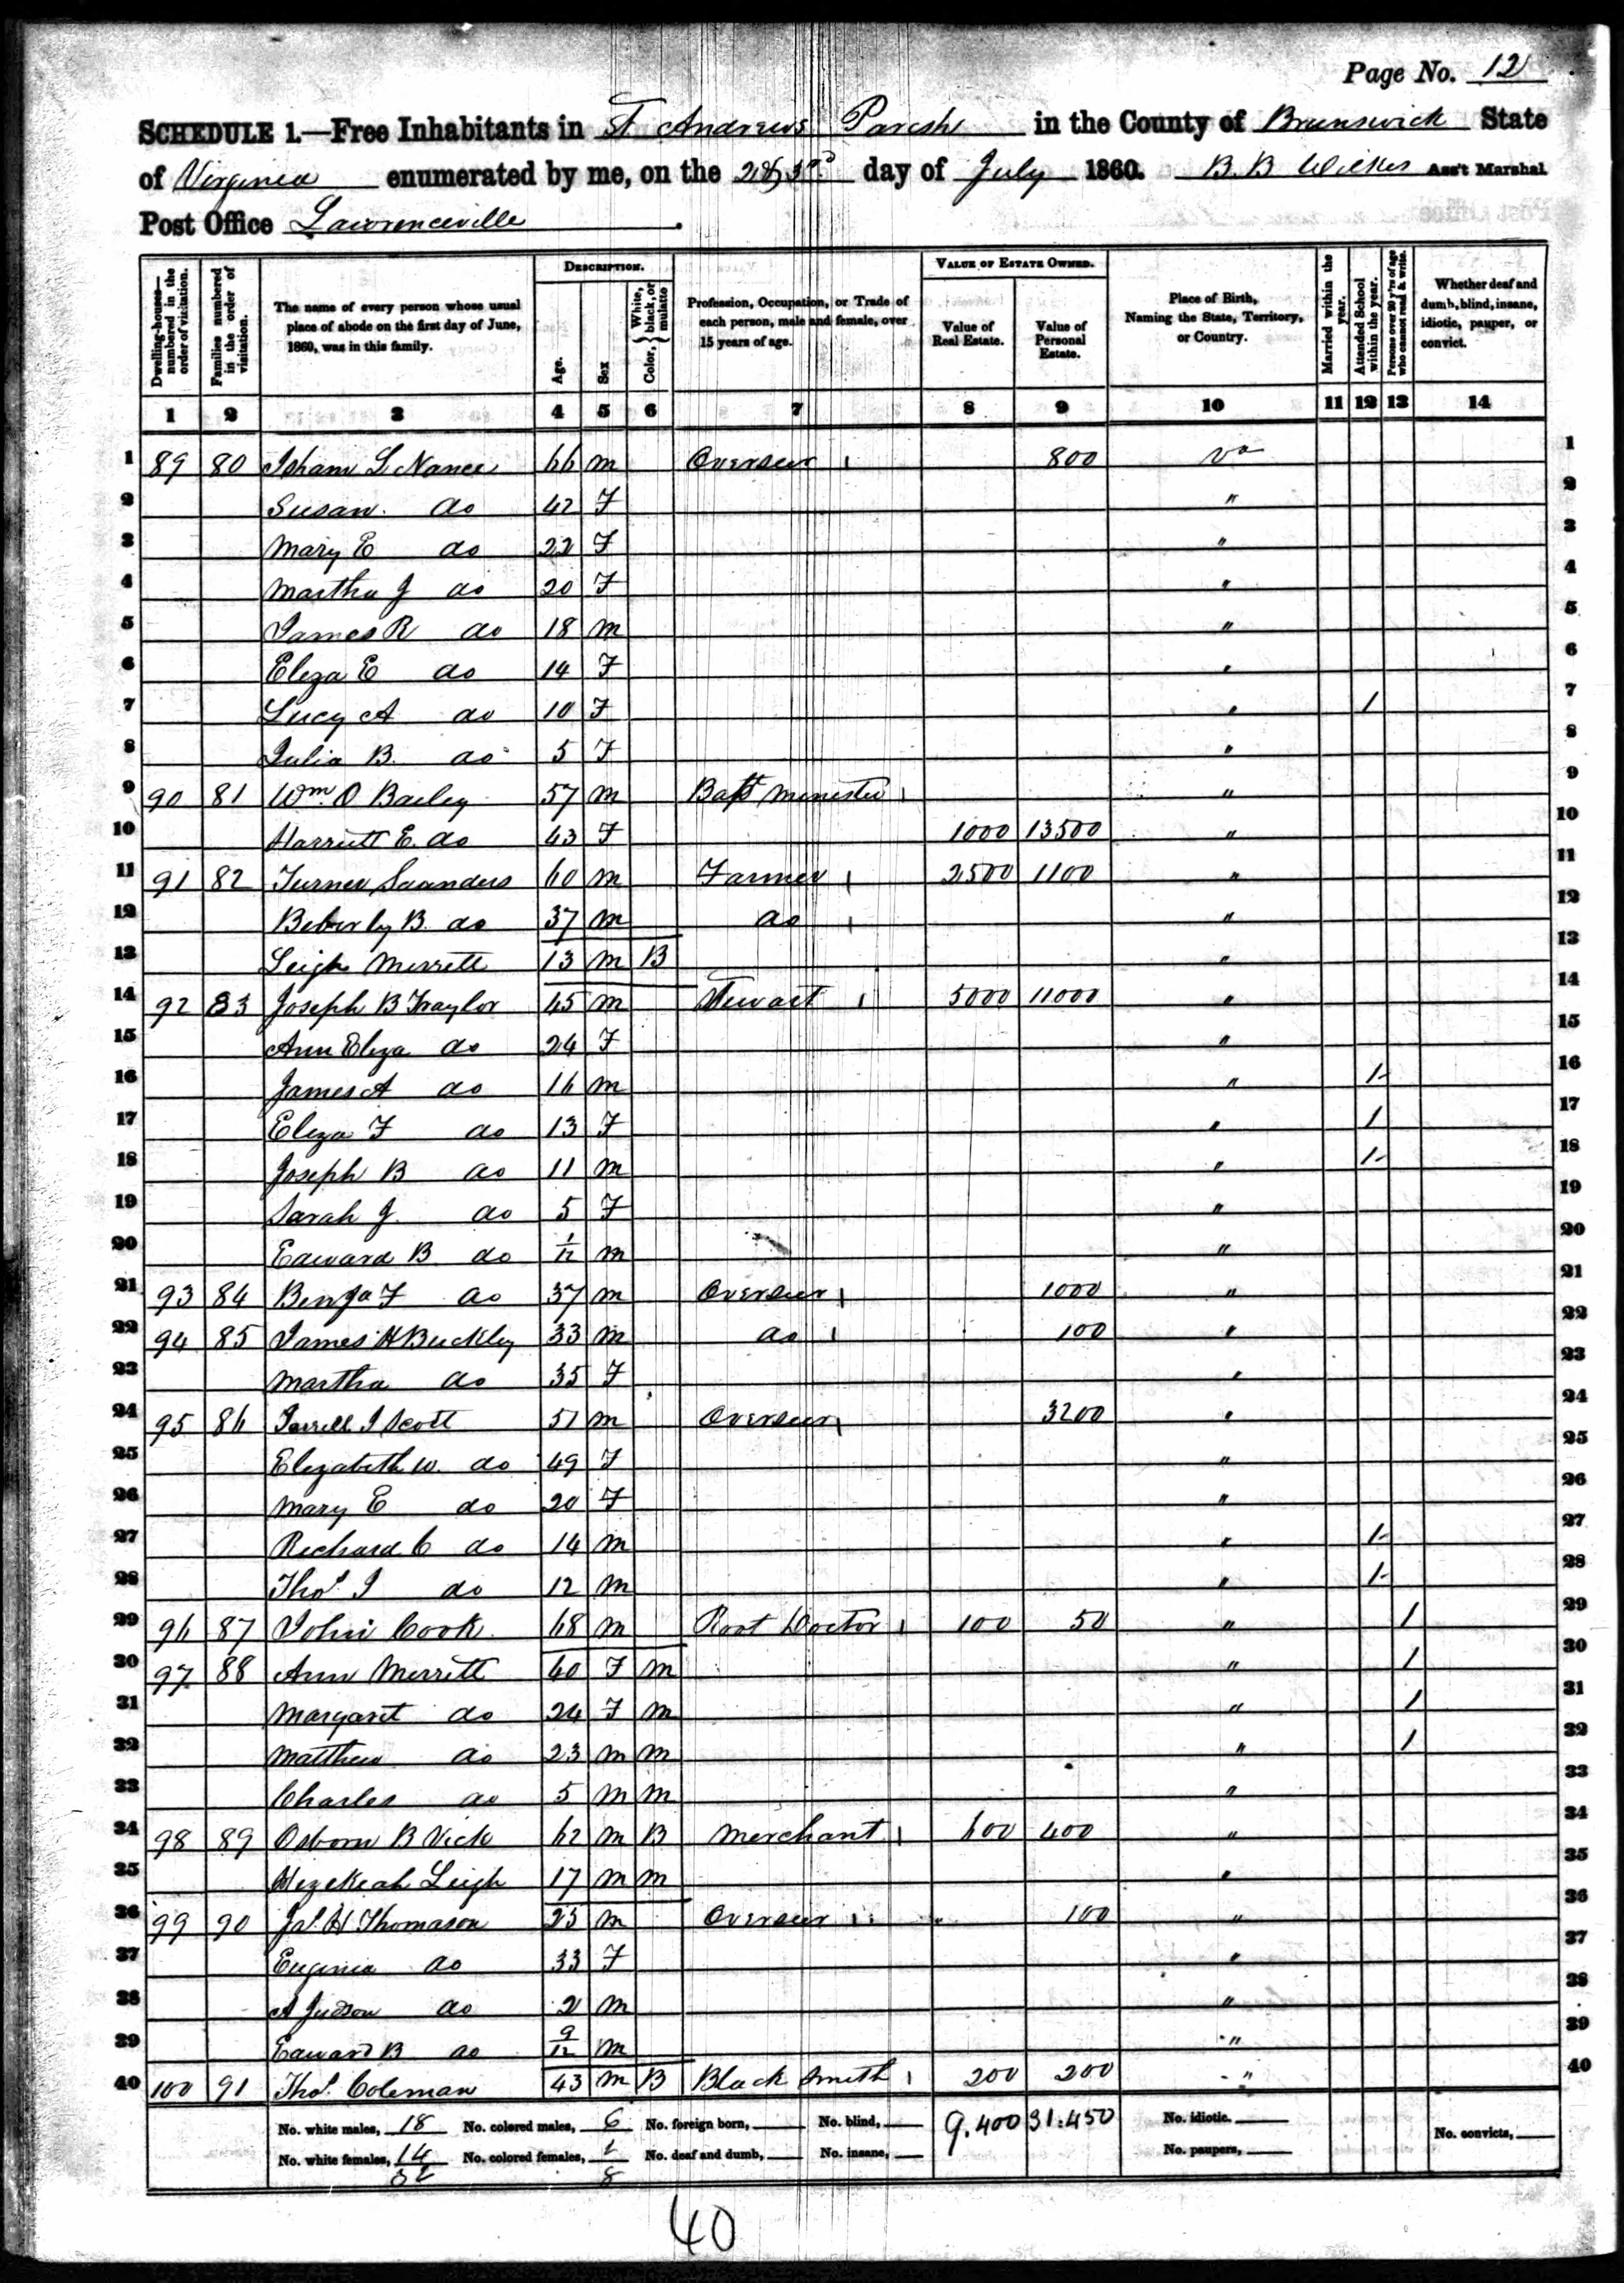 Page No. 12
SCHEDULE 1.—Free Inhabitants in St Andrews Parish in the County of Brunswick State
of Virginia enumerated by me, on the 2d, 3rd day of July 1860. B. B. Wilkes Ass't Marshal
Post Office Lawrenceville.
Dwelling-houses—numbered in the order of visitation.
Families numbered in the order of visitation.
The name of every person whose usual place of abode on the first day of June, 1860, was in this family.
DESCRIPTION.
Age.
Sex
Color, White, black, or mulatto
Profession, Occupation, or Trade of each person, male and female, over 15 years of age.
VALUE OF ESTATE OWNED.
Value of Real Estate.
Value of Personal Estate.
Place of Birth, Naming the State, Territory, or Country.
Married within the year.
Attended School within the year.
Persons over 20 y'rs of age who cannot read & write.
Whether deaf and dumb, blind, insane, idiotic, pauper, or convict.
1 2 3 4 5 6 7 8 9 10 11 12 13 14
1 89 80 Isham L Nance 66 m Overseer 1 800 Va 1
2 Susan. do 42 F " 2
3 Mary E do 22 F " 3
4 Martha J do 20 F " 4
5 James R do 18 m " 5
6 Eliza E do 14 F " 6
7 Lucy A do 10 F " 1 7
8 Julia B. do 5 F " 8
9 90 81 Wm O Bailey 57 m Bapt Minister 1 " 9
10 Harriett E. do 43 F 1000 13500 " 10
11 91 82 Turner Saunders 60 m Farmer 1 2500 1100 " 11
12 Beberly B. do 37 m do 1 " 12
13 Leigh Merrett 13 m B " 13
14 92 83 Joseph B Traylor 45 m Stewart 1 5000 11000 " 14
15 Ann Eliza do 24 F " 15
16 James A do 16 m " 1 16
17 Eliza F do 13 F " 1 17
18 Joseph B do 11 m " 1 18
19 Sarah J. do 5 F " 19
20 Edward B do 1/12 m " 20
21 93 84 Benja F do 37 m Overseer 1 1000 " 21
22 94 85 James H Buckley 33 m do 1 100 " 22
23 Martha do 35 F " 23
24 95 86 J Scott 51 m Overseer 1 3200 " 24
25 Elizabeth W. do 49 F " 25
26 Mary E do 20 F " 26
27 Richard C do 14 m " 1 27
28 Thos. J do 12 m " 1 28
29 96 87 John Cook. 68 m Root Doctor 1 100 50 " 1 29
30 97 88 Ann Merrett 60 F m " 1 30
31 Margaret do 24 F m " 1 31
32 Matthew do 23 m m " 1 32
33 Charles do 5 m m " 33
34 98 89 Osborn B Vick 62 m B Merchant 1 600 400 " 34
35 Hezekeah Leigh 17 m m " 35
36 99 90 Jas. H Thomason 25 m Overseer 1 100 " 36
37 Eugenia do 33 F " 37
38 A Judson do 2 m " 38
39 Edward B do 9/12 m " 39
40 100 91 Thos. Coleman 43 m B Black Smith 1 200 200 " 40
No. white males, 18 No. colored males, 6 No. foreign born, No. blind, 9.400 31.450 No. idiotic. No. convicts,
No. white females, 14 No. colored females, 2 No. deaf and dumb, No. insane, No. paupers,
32 8
40